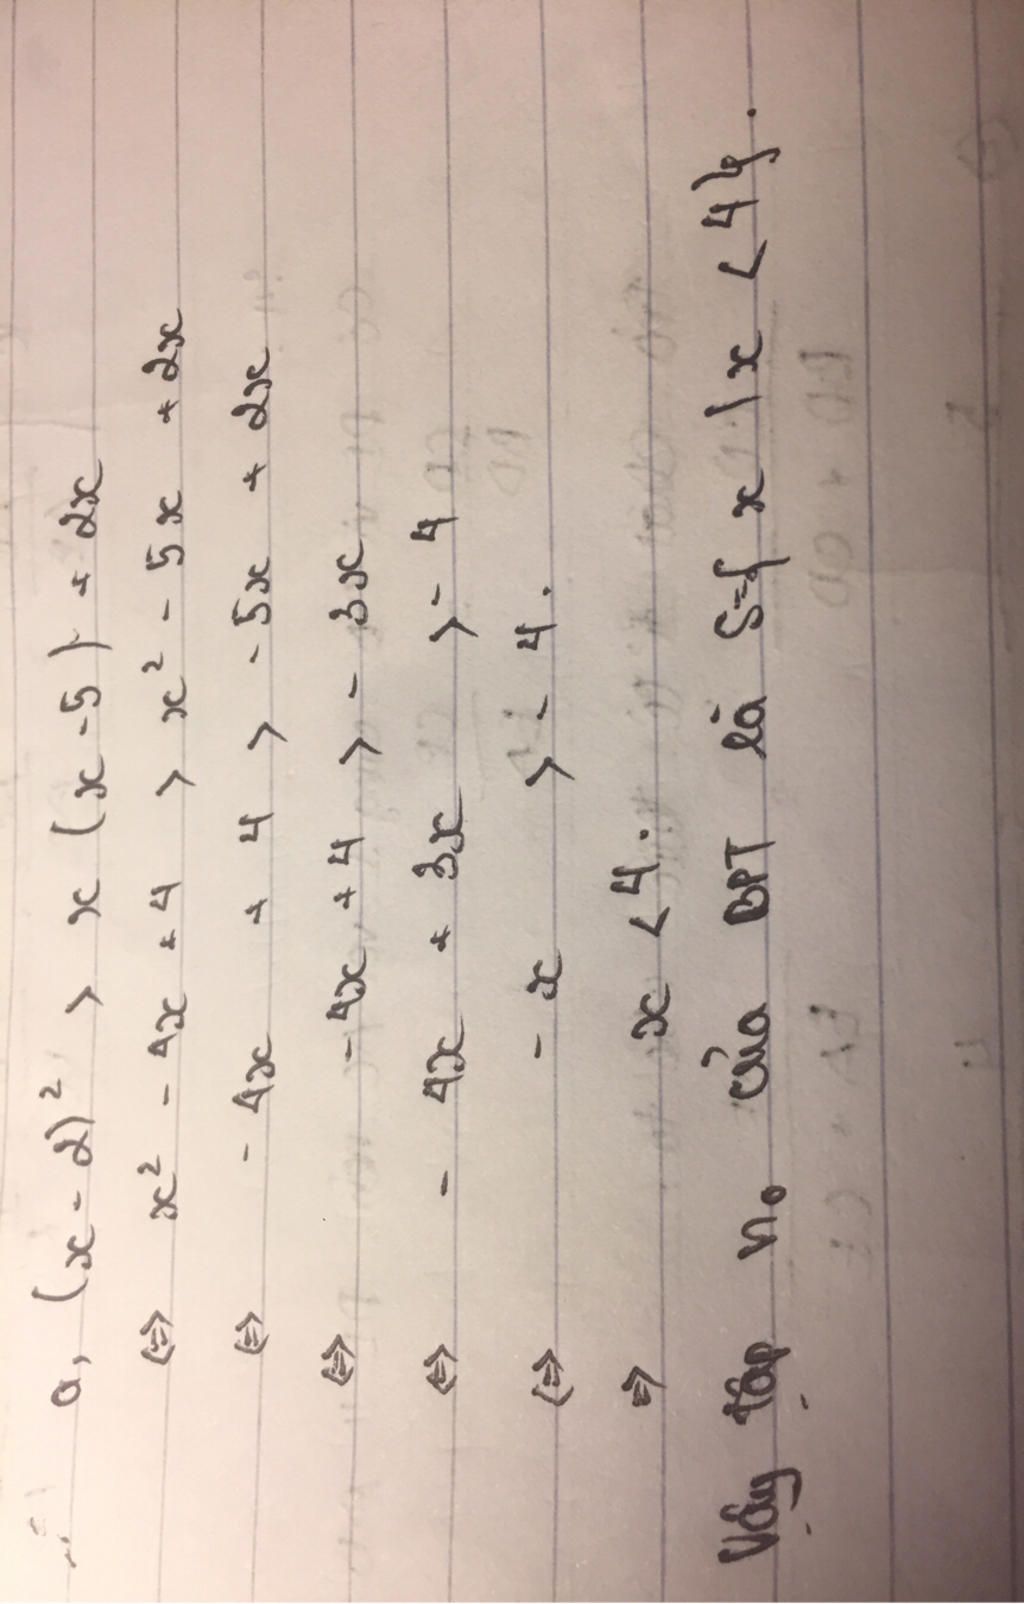 a, (x - 2)² > x (x - 5) + 2x
⇔ x² - 4x + 4 > x² - 5x + 2x
⇔ - 4x + 4 > - 5x + 2x
⇔ - 4x + 4 > - 3x
⇔ - 4x + 3x > - 4
⇔ - x > - 4.
⇔ x < 4.
Vậy tập n₀ của BPT là S={ x / x < 4}.